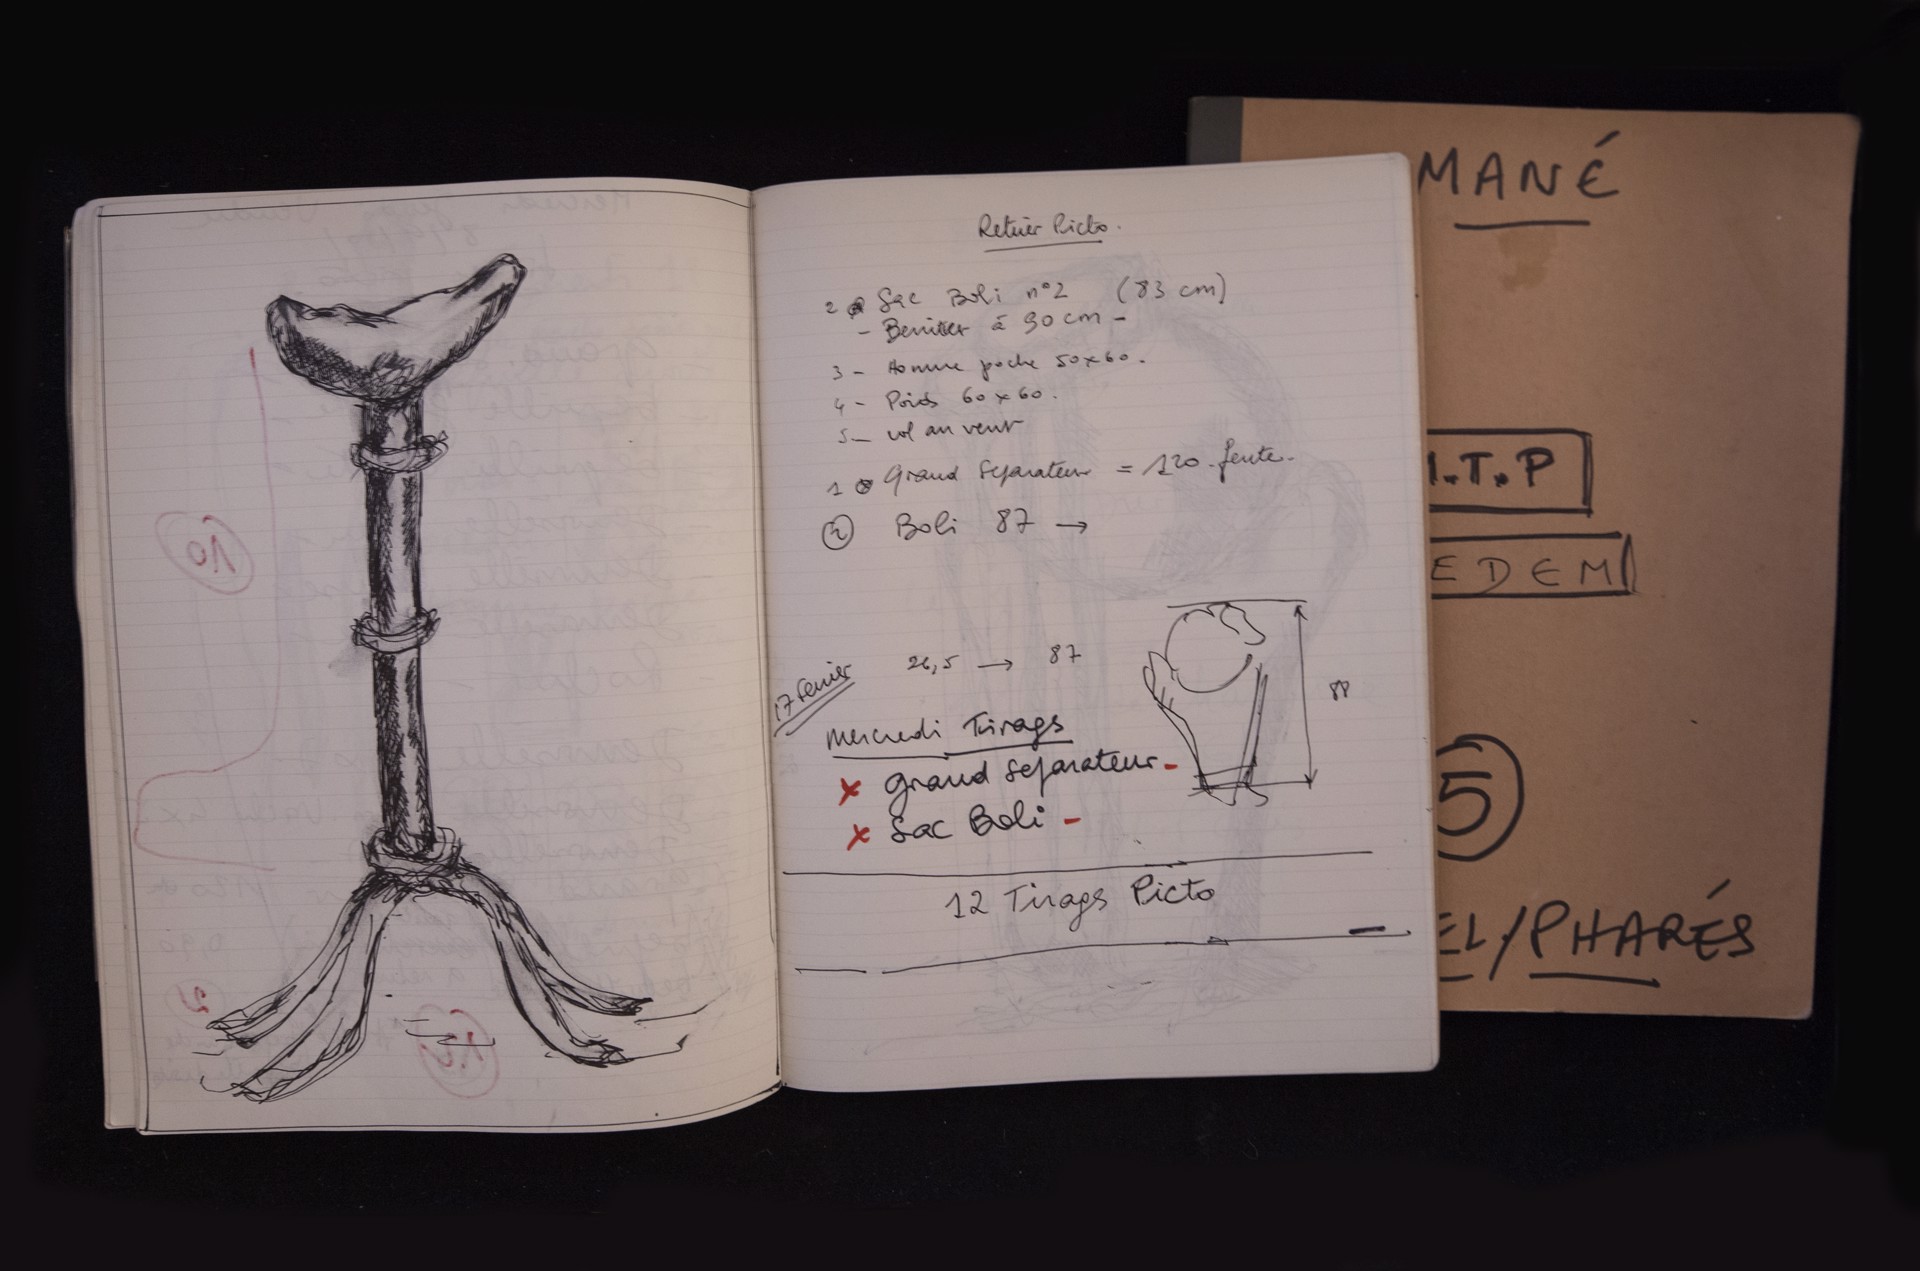 Retirer Picto.
2 Sac Boli n°2 (83 cm)
- Benitier à 90 cm -
3 - Homme poche 50x60.
4 - Poids 60x60.
5 - vol au vent
1 Grand Separateur = 120 fente.
2 Boli 87 →
26,5 → 87
88
17 Fevrier
Mercredi Tirags
x Grand Separateur -
x Sac Boli -
12 Tirags Picto
10
MANÉ
I.T.P
EDEM
5
EL/PHARÉS